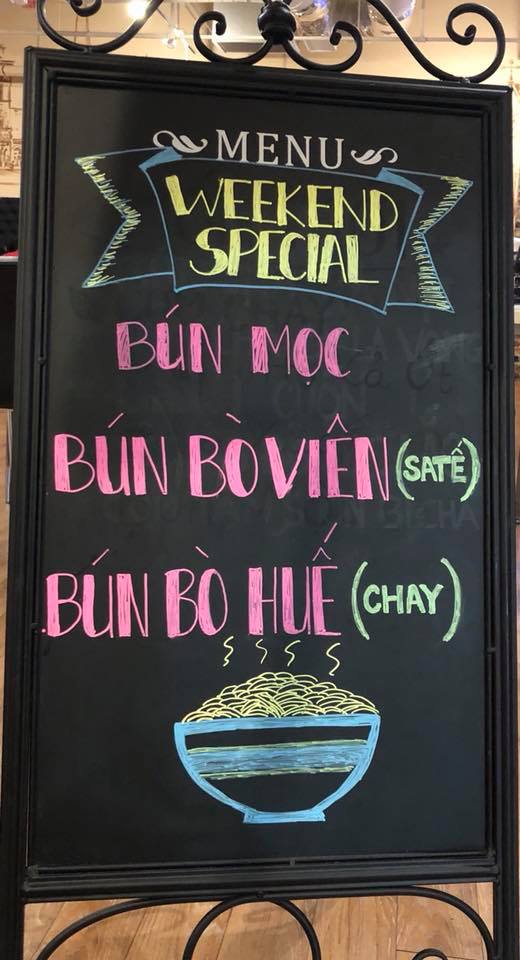 MENU
WEEKEND
SPECIAL
BÚN MỌC
BÚN BÒ VIÊN (SATẾ)
BÚN BÒ HUẾ (CHAY)